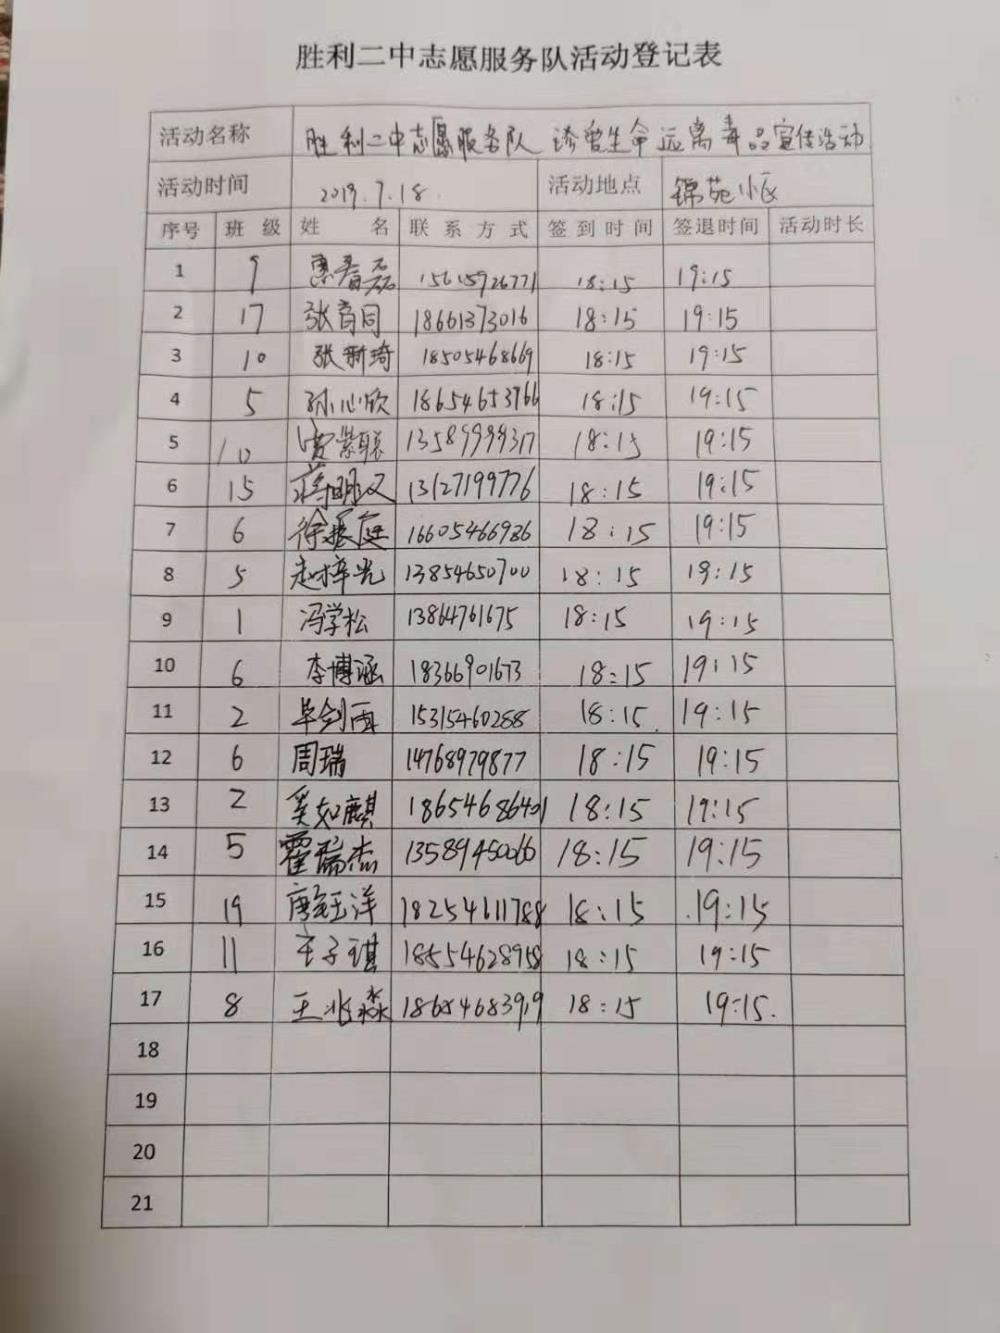 胜利二中志愿服务队活动登记表
活动名称 胜利二中志愿服务队 生命 远离毒品宣传活动
活动时间 2019.7.18. 活动地点 锦苑小区
序号 班 级 姓 名 联 系 方 式 签 到 时 间 签退时间 活动时长
1 9 惠春磊 15615926771 18:15 19:15
2 17 张育同 18661373016 18:15 19:15
3 10 张新琦 18505468669 18:15 19:15
4 5 孙心欣 18654653766 18:15 19:15
5 10 13589999317 18:15 19:15
6 15 蒋明义 13127199776 18:15 19:15
7 6 徐振庭 16605466986 18:15 19:15
8 5 赵梓光 13854650700 18:15 19:15
9 1 冯学松 13864761675 18:15 19:15
10 6 李博涵 18366901673 18:15 19:15
11 2 毕剑雨 15315460288 18:15. 19:15
12 6 周瑞 14768979877 18:15 19:15
13 2 奚如麒 18654686401 18:15 19:15
14 5 霍瑞杰 13589450066 18:15 19:15
15 19 唐钰洋 18254611788 18:15 .19:15
16 11 王子琪 18554628958 18:15 19:15
17 8 王兆淼 18654683919 18:15 19:15.
18
19
20
21